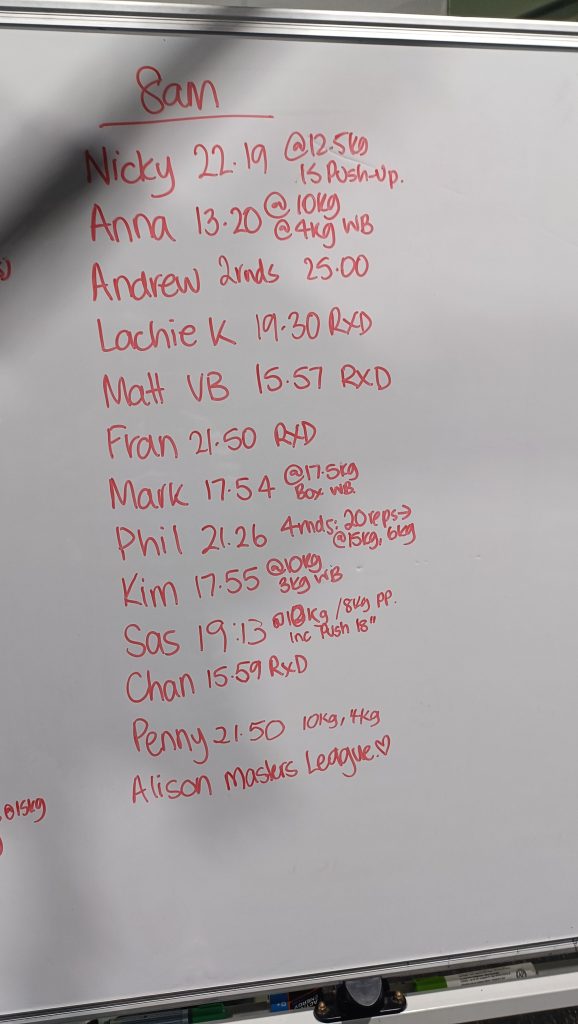 8am
Nicky 22.19 @12.5kg
15 Push-up.
Anna 13.20 @ 10kg
@4kg WB
Andrew 2rnds 25.00
Lachie K 19.30 RXD
Matt VB 15.57 RXD
Fran 21.50 RXD
Mark 17.54 @17.5kg
Box WB.
Phil 21.26 4rnds: 20reps→
@15kg, 6kg
Kim 17.55 @10kg
3kg WB
Sas 19:13 @10kg /8kg PP.
inc Push 18"
Chan 15.59 RxD
Penny 21.50 10kg, 4kg
Alison Masters League.♡
@15kg